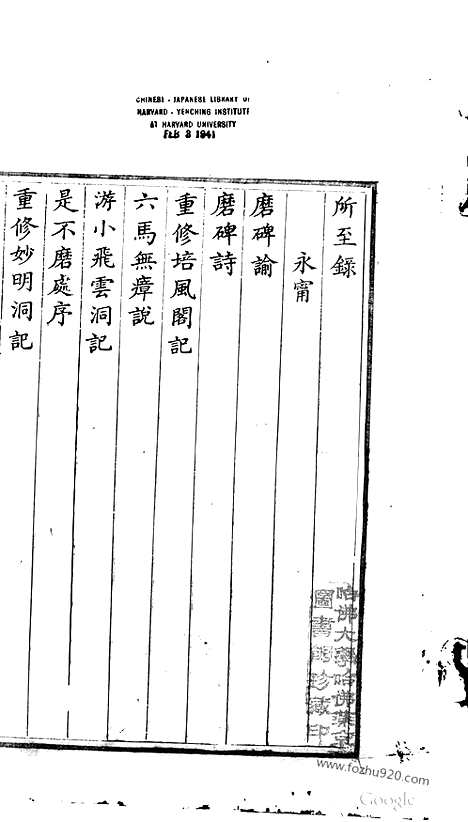 CHINESE - JAPANESE LIBRARY OF
HARVARD - YENCHING INSTITUTE
AT HARVARD UNIVERSITY
FEB 3 1941
所至錄
永甯
磨碑諭
磨碑詩
重修培風閣記
六馬無瘴說
游小飛雲洞記
是不磨處序
重修妙明洞記
哈佛大學哈佛燕京
圖書館珍藏印
www.fozhu920.com
Google